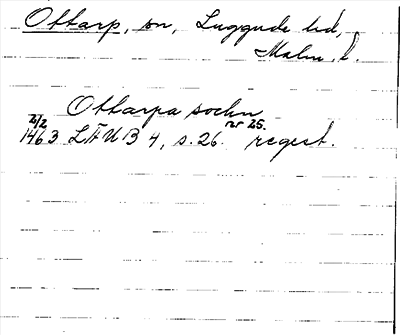 Ottarp, sn, Luggude hd,
Malm. l.
Ottarpa sockn
2/2 nr 25.
1463 LÄUB 4, s. 26. regest.